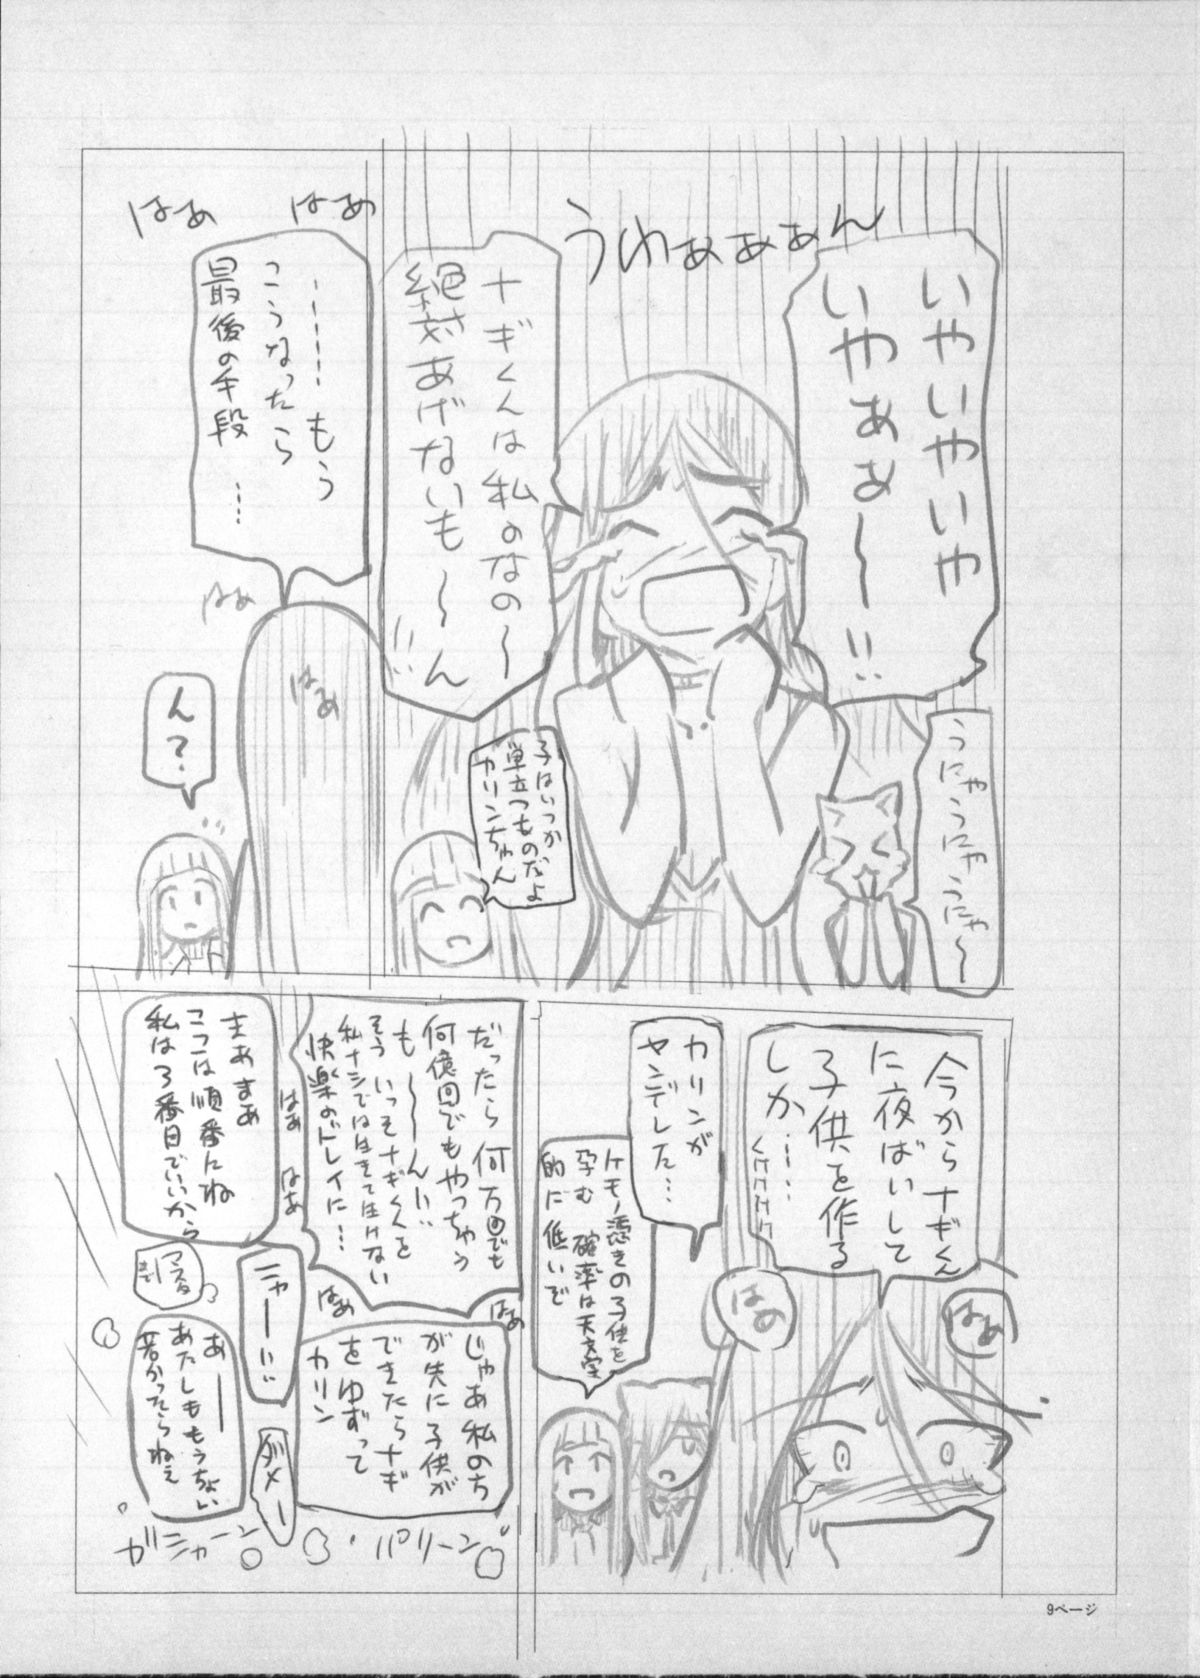 いやいやいや
いやぁあ〜!!
うわぁぁぁぁん
うにゃうにゃうにゃ〜
ナギくんは私のなの〜
絶対あげないも〜ん
!!
子はいつか
巣立つものだよ
カリンちゃん
はぁ
はぁ
………もう
こうなったら
最後の手段
…
はぁ
はぁ
ん?
今からナギくん
に夜ばいして
子供を作る
しか……
くけけけけ
はぁ
はぁ
カリンが
ヤンデレした…
ケモノ憑きの子供を
孕む確率は天文学
的に低いで
だったら何万回でも
何億回でもやっちゃう
も〜〜ん!!
そういっそナギくんを
私ナシでは生きて生けない
快楽のドレイに…
はぁ
はぁ
はぁ
はぁ
まあまあ
ここは順番にね
私は3番目でいいから
じゃあ私のち
が先に子供が
できたらナギ
をゆずって
カリン
ニャーー!!
ダメー
マスタ
まで!
あーー
あたしももうちょい
若かったらねえ
ガシャーン
パリーン
9ページ